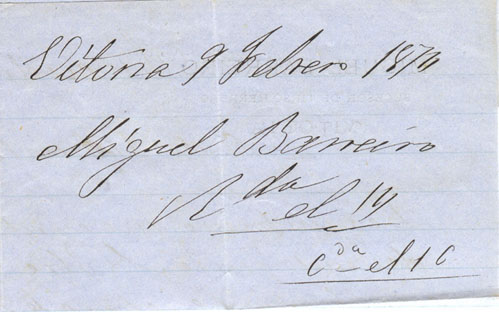 Vitoria 9 Febrero 1874
Miguel Barreiro
Rda el 14
Cda el 16